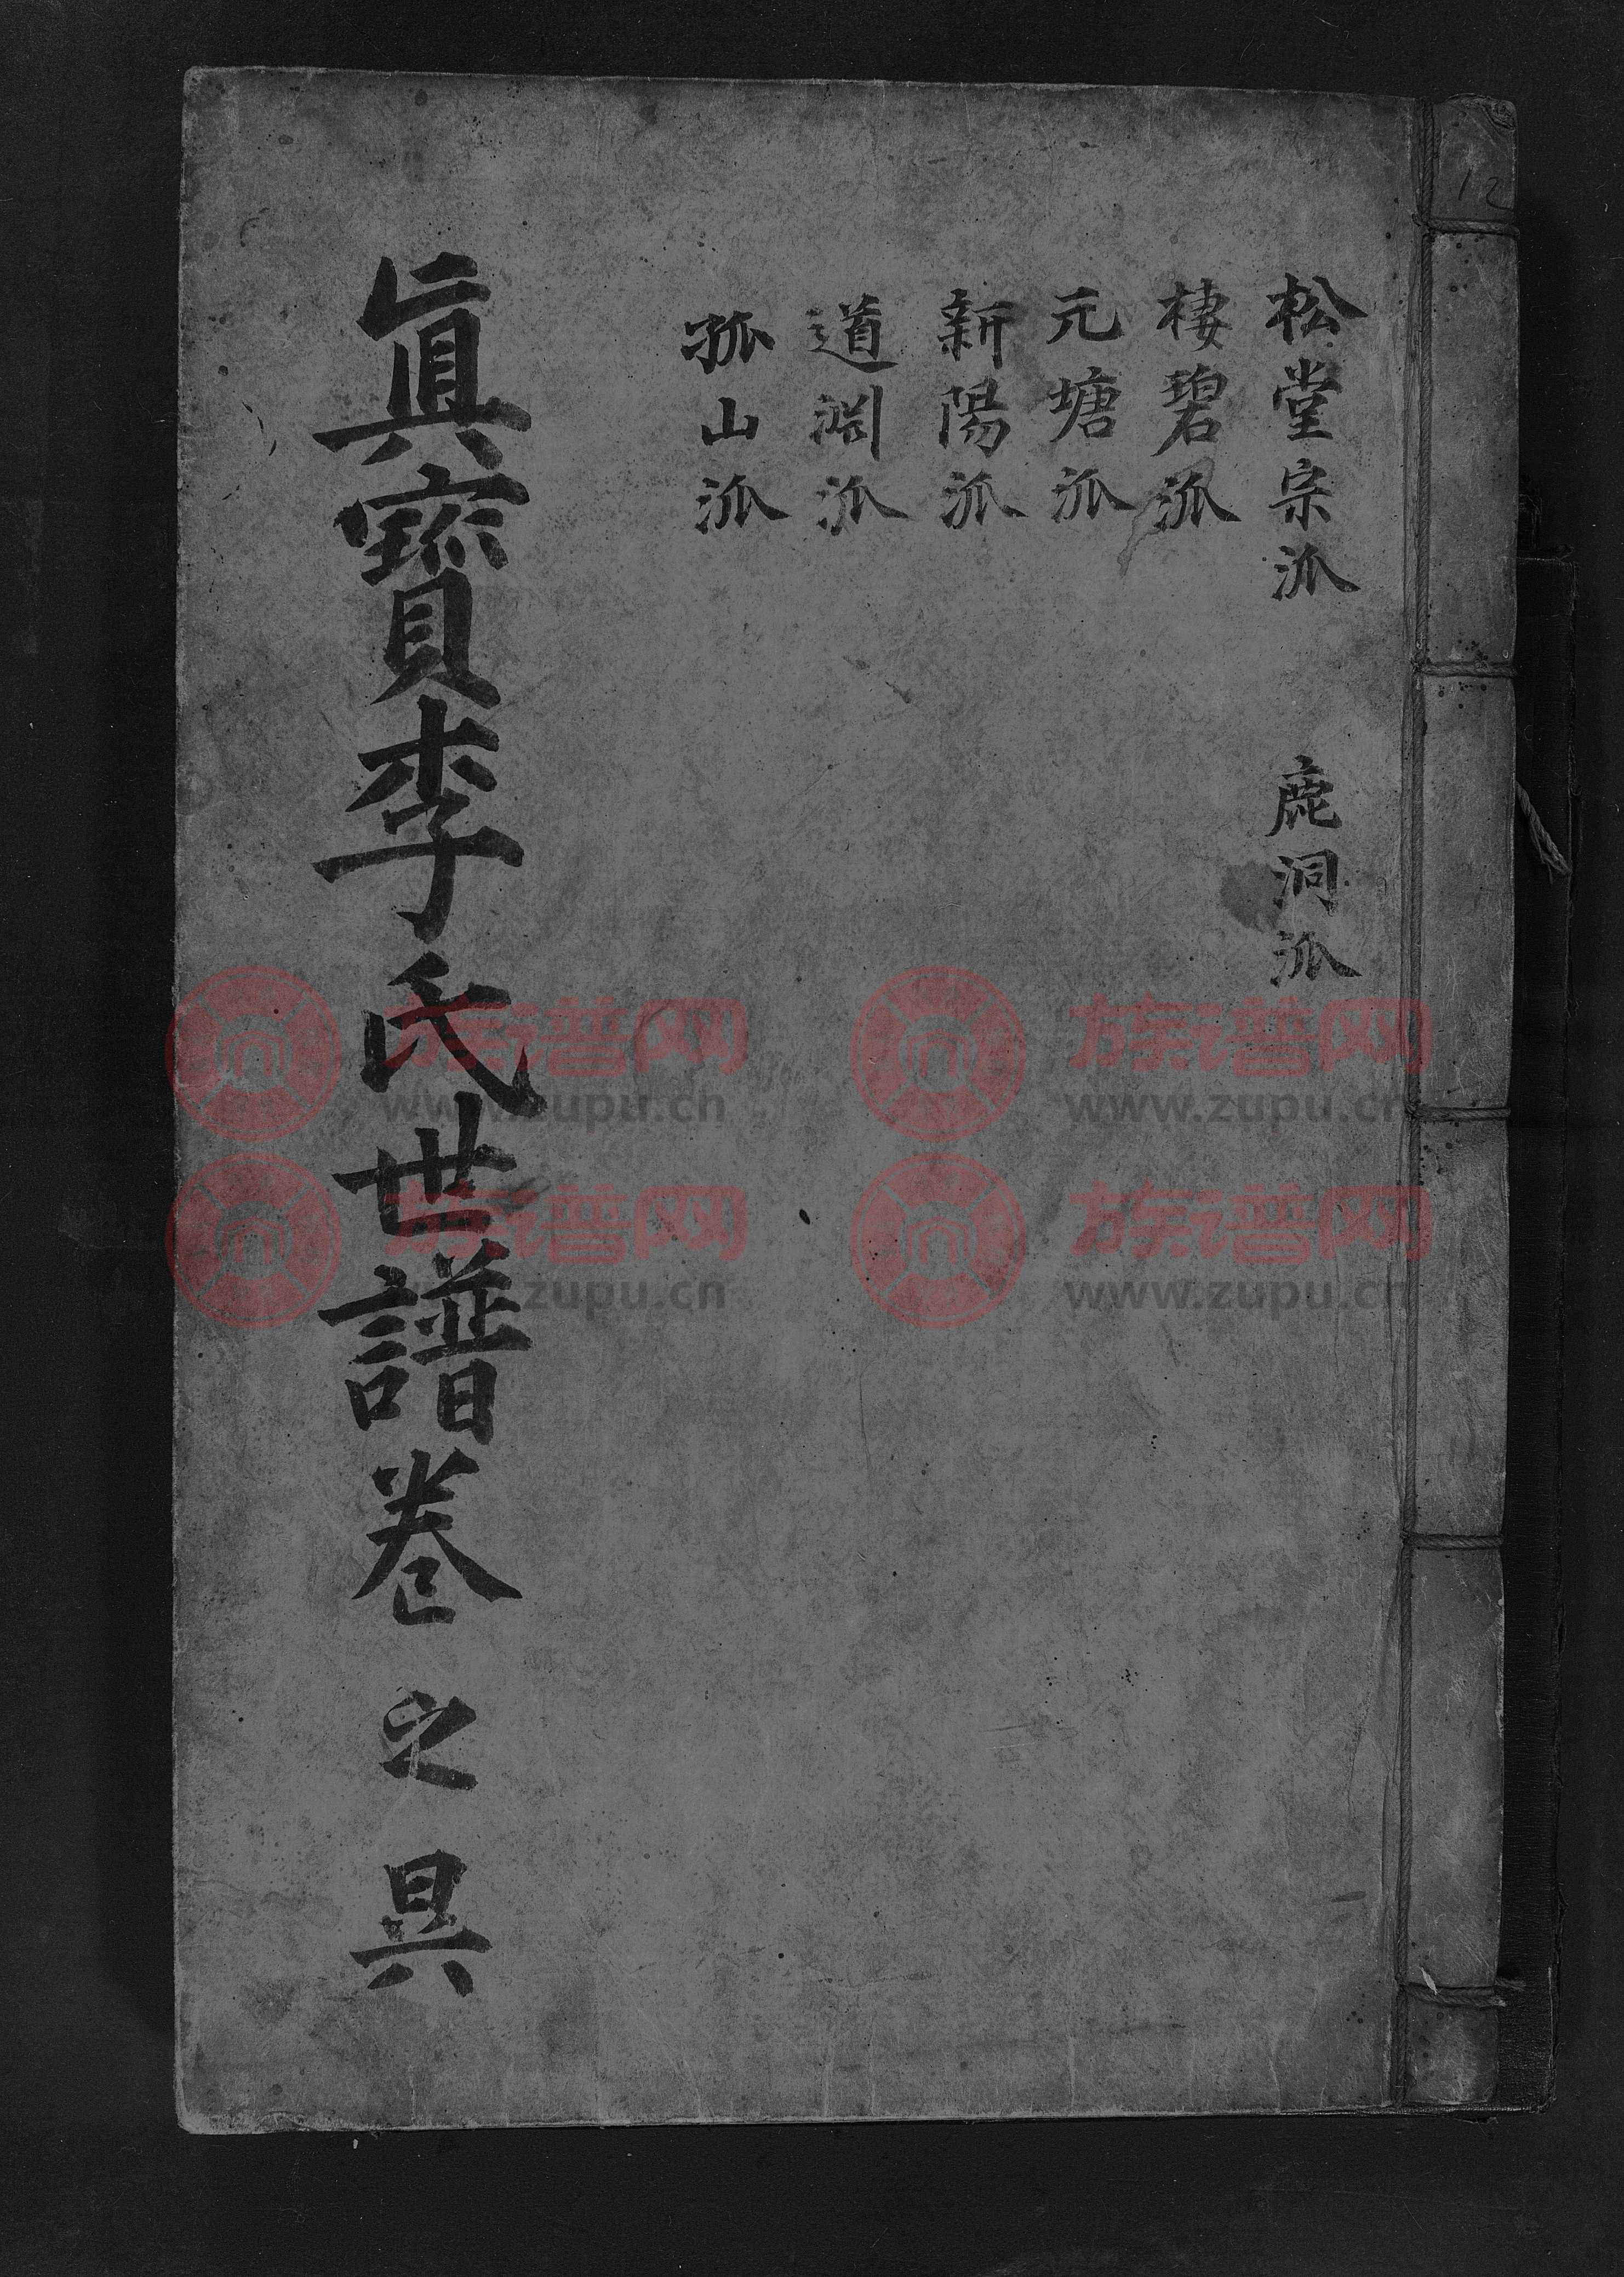 松堂宗派 鹿洞派
棲碧派
元塘派
新陽派
道淵派
孤山派
眞寶李氏世譜卷之昗
12
族谱网
www.zupu.cn
族谱网
www.zupu.cn
族谱网
www.zupu.cn
族谱网
www.zupu.cn